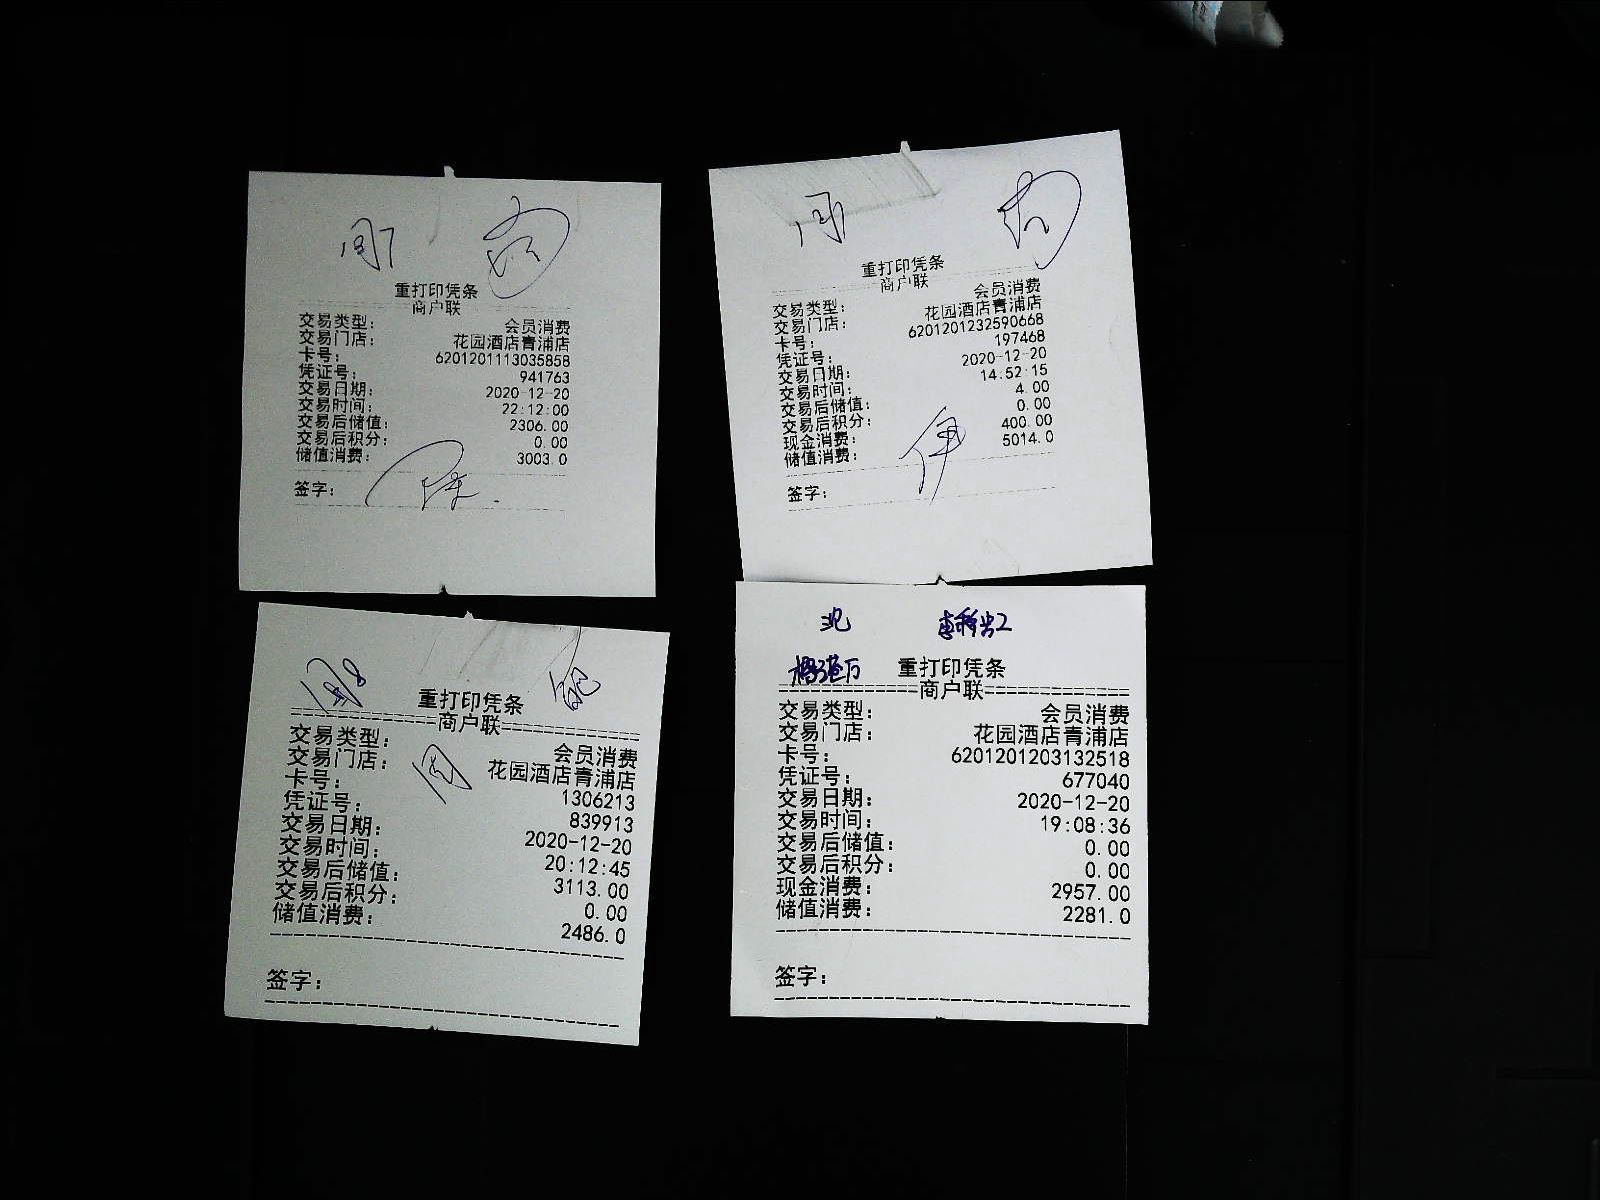 重打印凭条
商户联
交易类型： 会员消费
交易门店： 花园酒店青浦店
卡号： 6201201113035858
凭证号： 941763
交易日期： 2020-12-20
交易时间： 22:12:00
交易后储值： 2306.00
交易后积分： 0.00
储值消费： 3003.0
签字：
重打印凭条
商户联
交易类型： 会员消费
交易门店： 花园酒店青浦店
卡号： 6201201232590668
凭证号： 197468
交易日期： 2020-12-20
交易时间： 14:52:15
交易后储值： 4.00
交易后积分： 0.00
现金消费： 400.00
储值消费： 5014.0
签字：
重打印凭条
商户联
交易类型： 会员消费
交易门店： 花园酒店青浦店
卡号： 1306213
凭证号： 839913
交易日期： 2020-12-20
交易时间： 20:12:45
交易后储值： 3113.00
交易后积分： 0.00
储值消费： 2486.0
签字：
重打印凭条
商户联
交易类型： 会员消费
交易门店： 花园酒店青浦店
卡号： 6201201203132518
凭证号： 677040
交易日期： 2020-12-20
交易时间： 19:08:36
交易后储值： 0.00
交易后积分： 0.00
现金消费： 2957.00
储值消费： 2281.0
签字：